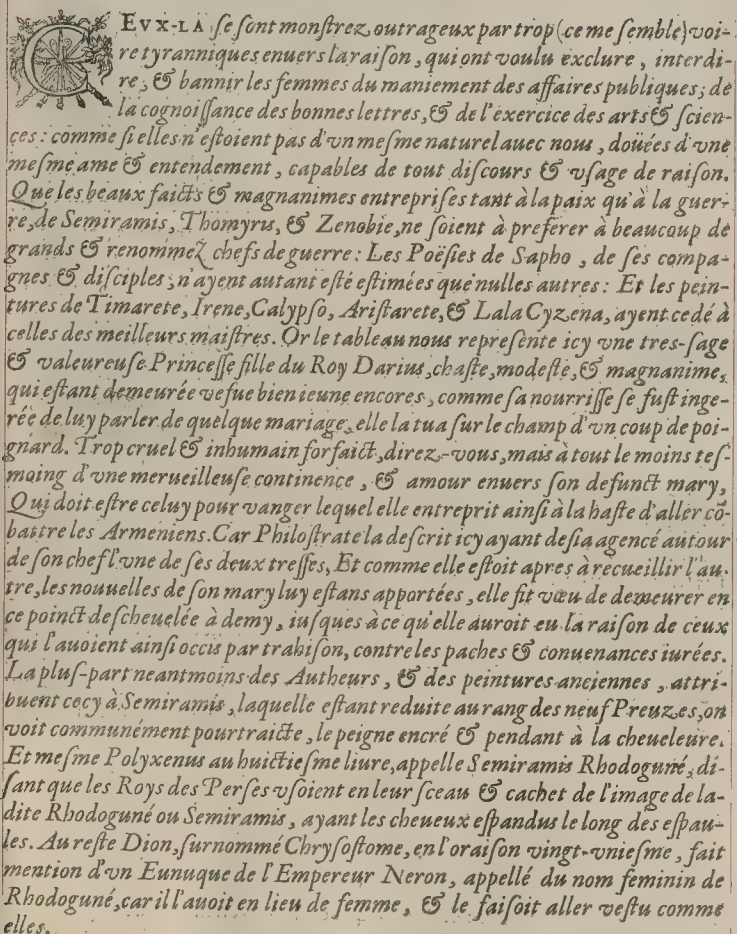 CEVX-LA se sont monstrez outrageux par trop (ce me semble) voi-
re tyranniques enuers la raison, qui ont voulu exclure, interdi-
re, & bannir les femmes du maniement des affaires publiques; de
la cognoissance des bonnes lettres, & de l'exercice des arts & scien-
ces: comme si elles n'estoient pas d'vn mesme naturel auec nous, doüées d'vne
mesme ame & entendement, capables de tout discours & vsage de raison.
Que les beaux faicts & magnanimes entreprises tant à la paix qu'à la guer-
re, de Semiramis, Thomyrus, & Zenobie, ne soient à preferer à beaucoup de
grands & renommez chefs de guerre: Les Poësies de Sapho, de ses compa-
gnes & disciples, n'ayent autant esté estimées que nulles autres: Et les pein-
tures de Timarete, Irene, Calypso, Aristarete, & Lala Cyzena, ayent cedé à
celles des meilleurs maistres. Or le tableau nous represente icy vne tres-sage
& valeureuse Princesse fille du Roy Darius, chaste, modeste, & magnanime,
qui estant demeurée vefue bien ieune encores, comme sa nourrisse se fust inge-
rée de luy parler de quelque mariage, elle la tua sur le champ d'vn coup de poi-
gnard. Trop cruel & inhumain forfaict, direz-vous, mais à tout le moins tes-
moing d'vne merueilleuse continence, & amour enuers son defunct mary,
Qui doit estre celuy pour vanger lequel elle entreprit ainsi à la haste d'aller cõ-
battre les Armeniens. Car Philostrate la descrit icy ayant desia agencé autour
de son chef l'vne de ses deux tresses, Et comme elle estoit apres à recueillir l'au-
tre, les nouuelles de son mary luy estans apportées, elle fit vœu de demeurer en
ce poinct descheuelée à demy, iusques à ce qu'elle auroit eu la raison de ceux
qui l'auoient ainsi occis par trahison, contre les paches & conuenances iurées.
La plus-part neantmoins des Autheurs, & des peintures anciennes, attri-
buent cecy à Semiramis, laquelle estant reduite au rang des neuf Preuzes, on
voit communément pourtraicte, le peigne encré & pendant à la cheueleure.
Et mesme Polyxenus au huictiesme liure, appelle Semiramis Rhodoguné, di-
sant que les Roys des Perses vsoient en leur sceau & cachet de l'image de la-
dite Rhodoguné ou Semiramis, ayant les cheueux espandus le long des espau-
les. Au reste Dion, surnommé Chrysostome, en l'oraison vingt-vniesme, fait
mention d'vn Eunuque de l'Empereur Neron, appellé du nom feminin de
Rhodoguné, car il l'auoit en lieu de femme, & le faisoit aller vestu comme
elles.